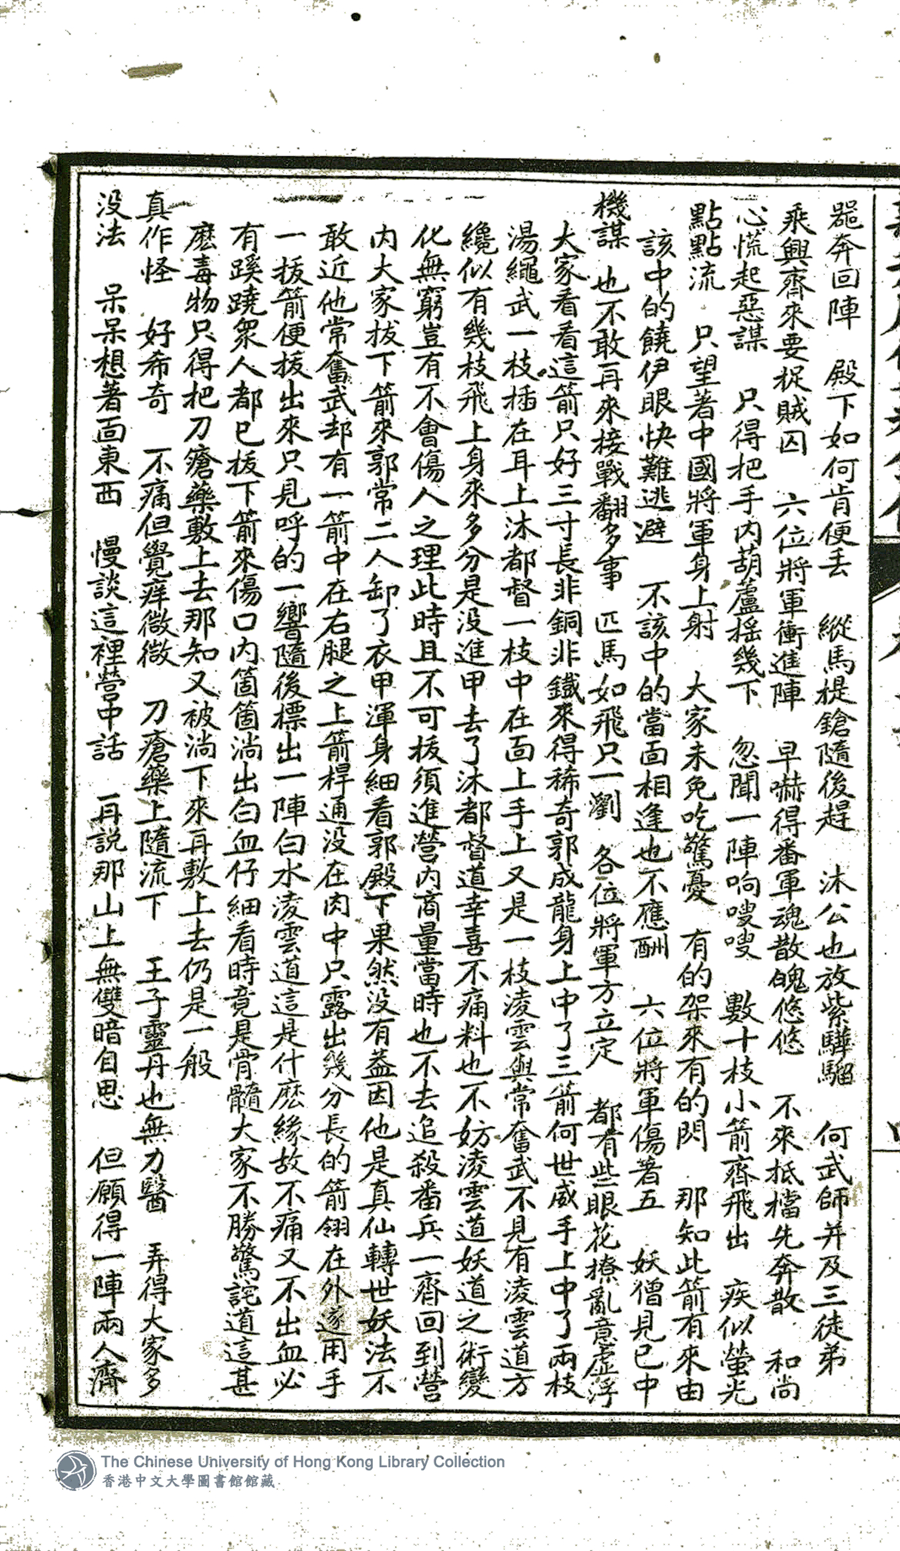 噐奔回陣　殿下如何肯便丢　縱馬提鎗隨後趕　沐公也放紫驊騮　何武師并及三徒弟
乘興齊來要捉賊囚　六位將軍衝進陣　早嚇得番軍魂散魄悠悠　不來抵擋先奔散　和尚
心慌起惡謀　只得把手内葫蘆搖幾下　忽聞一陣响嗖嗖　數十枝小箭齊飛出　疾似螢光
點點流　只望著中國將軍身上射　大家未免吃驚憂　有的架來有的閃　那知此箭有來由
該中的饒伊眼快難逃避　不該中的當面相逢也不應酬　六位將軍傷著五　妖僧見已中
機謀　也不敢再來接戰翻多事　匹馬如飛只一瀏　各位將軍方立定　都有些眼花撩亂意虛浮
大家看看這箭只好三寸長非銅非鐵來得稀奇郭成龍身上中了三箭何世威手上中了兩枝
湯繩武一枝插在耳上沐都督一枝中在面上手上又是一枝淩雲與常奮武不見有淩雲道方
纔似有幾枝飛上身來多分是没進甲去了沐都督道幸喜不痛料也不妨淩雲道妖道之術變
化無窮豈有不會傷人之理此時且不可拔須進營内商量當時也不去追殺番兵一齊回到營
内大家拔下箭來郭常二人卸了衣甲渾身細看郭殿下果然没有葢因他是真仙轉世妖法不
敢近他常奮武却有一箭中在右腿之上箭桿通没在肉中只露出幾分長的箭翎在外遂用手
一拔箭便拔出來只見呼的一響隨後標出一陣白水淩雲道這是什麽緣故不痛又不出血必
有蹊蹺衆人都已拔下箭來傷口内箇箇淌出白血仔細看時竟是骨髓大家不勝驚詫道這甚
麽毒物只得把刀瘡藥敷上去那知又被淌下來再敷上去仍是一般
真作怪　好希奇　不痛但覺痒微微　刀瘡藥上隨流下　王子靈丹也無力醫　弄得大家多
没法　呆呆想著面東西　慢談這裡營中話　再説那山上無雙暗自思　但願得一陣兩人齊
The Chinese University of Hong Kong Library Collection
香港中文大學圖書館館藏